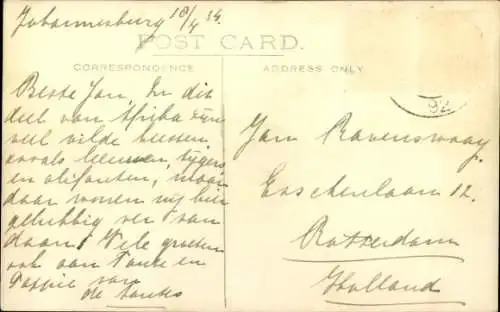 Johannesburg 18/4 34.
POST CARD.
CORRESPONDENCE
ADDRESS ONLY
Beste Jan, In dit
deel van Afrika zijn
veel wilde beesten
zooals leeuwen, tijgers
en olifanten, maar
daar wonen wij hier
gelukkig ver van
daan! Vele groeten
ook aan Tante en
Pappie van
de tantes
Jan Ravenswaay.
Esschenlaan 12.
Rotterdam
Holland